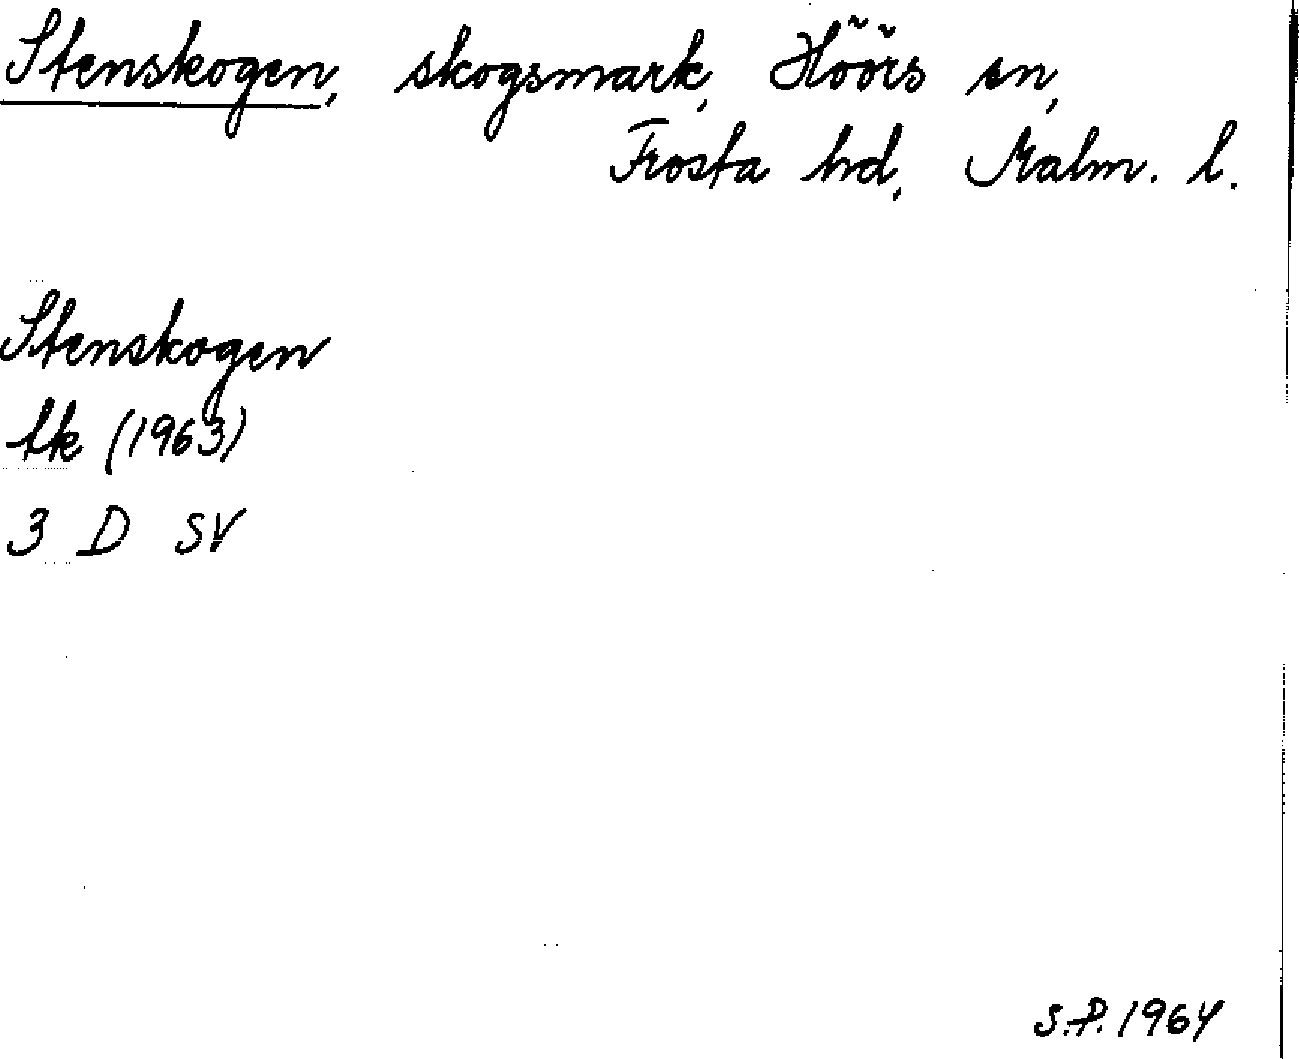 Stenskogen, skogsmark, Höörs sn,
Frosta hd, Malm. l.
Stenskogen
tk (1963)
3 D SV
S.P. 1964